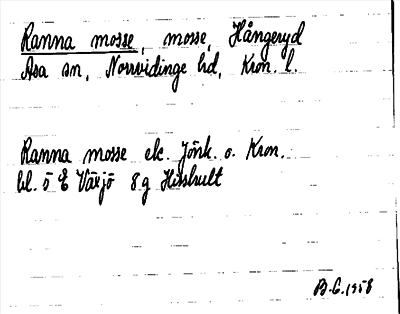 Ranna mosse, mosse, Hångeryd
Asa sn, Norrvidinge hd, Kron. l.
Ranna mosse ek. Jönk. o. Kron.
bl. 5 E Växjö 8 g Hisshult
B.G. 1958